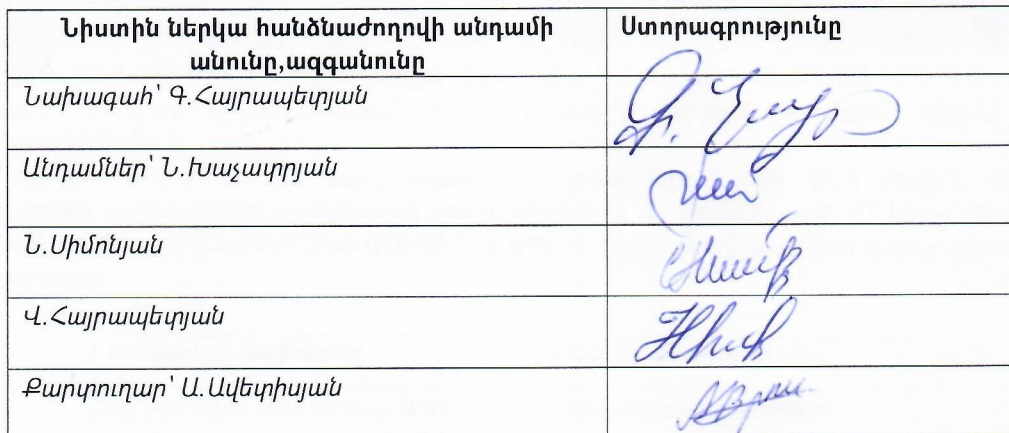 Նիստին ներկա հանձնաժողովի անդամի Ստորագրությունը
անունը,ազգանունը
Նախագահ՝ Գ.Հայրապետյան
Անդամներ՝ Ն.Խաչատրյան
Ն.Սիմոնյան
Վ.Հայրապետյան
Քարտուղար՝ Ա.Ավետիսյան